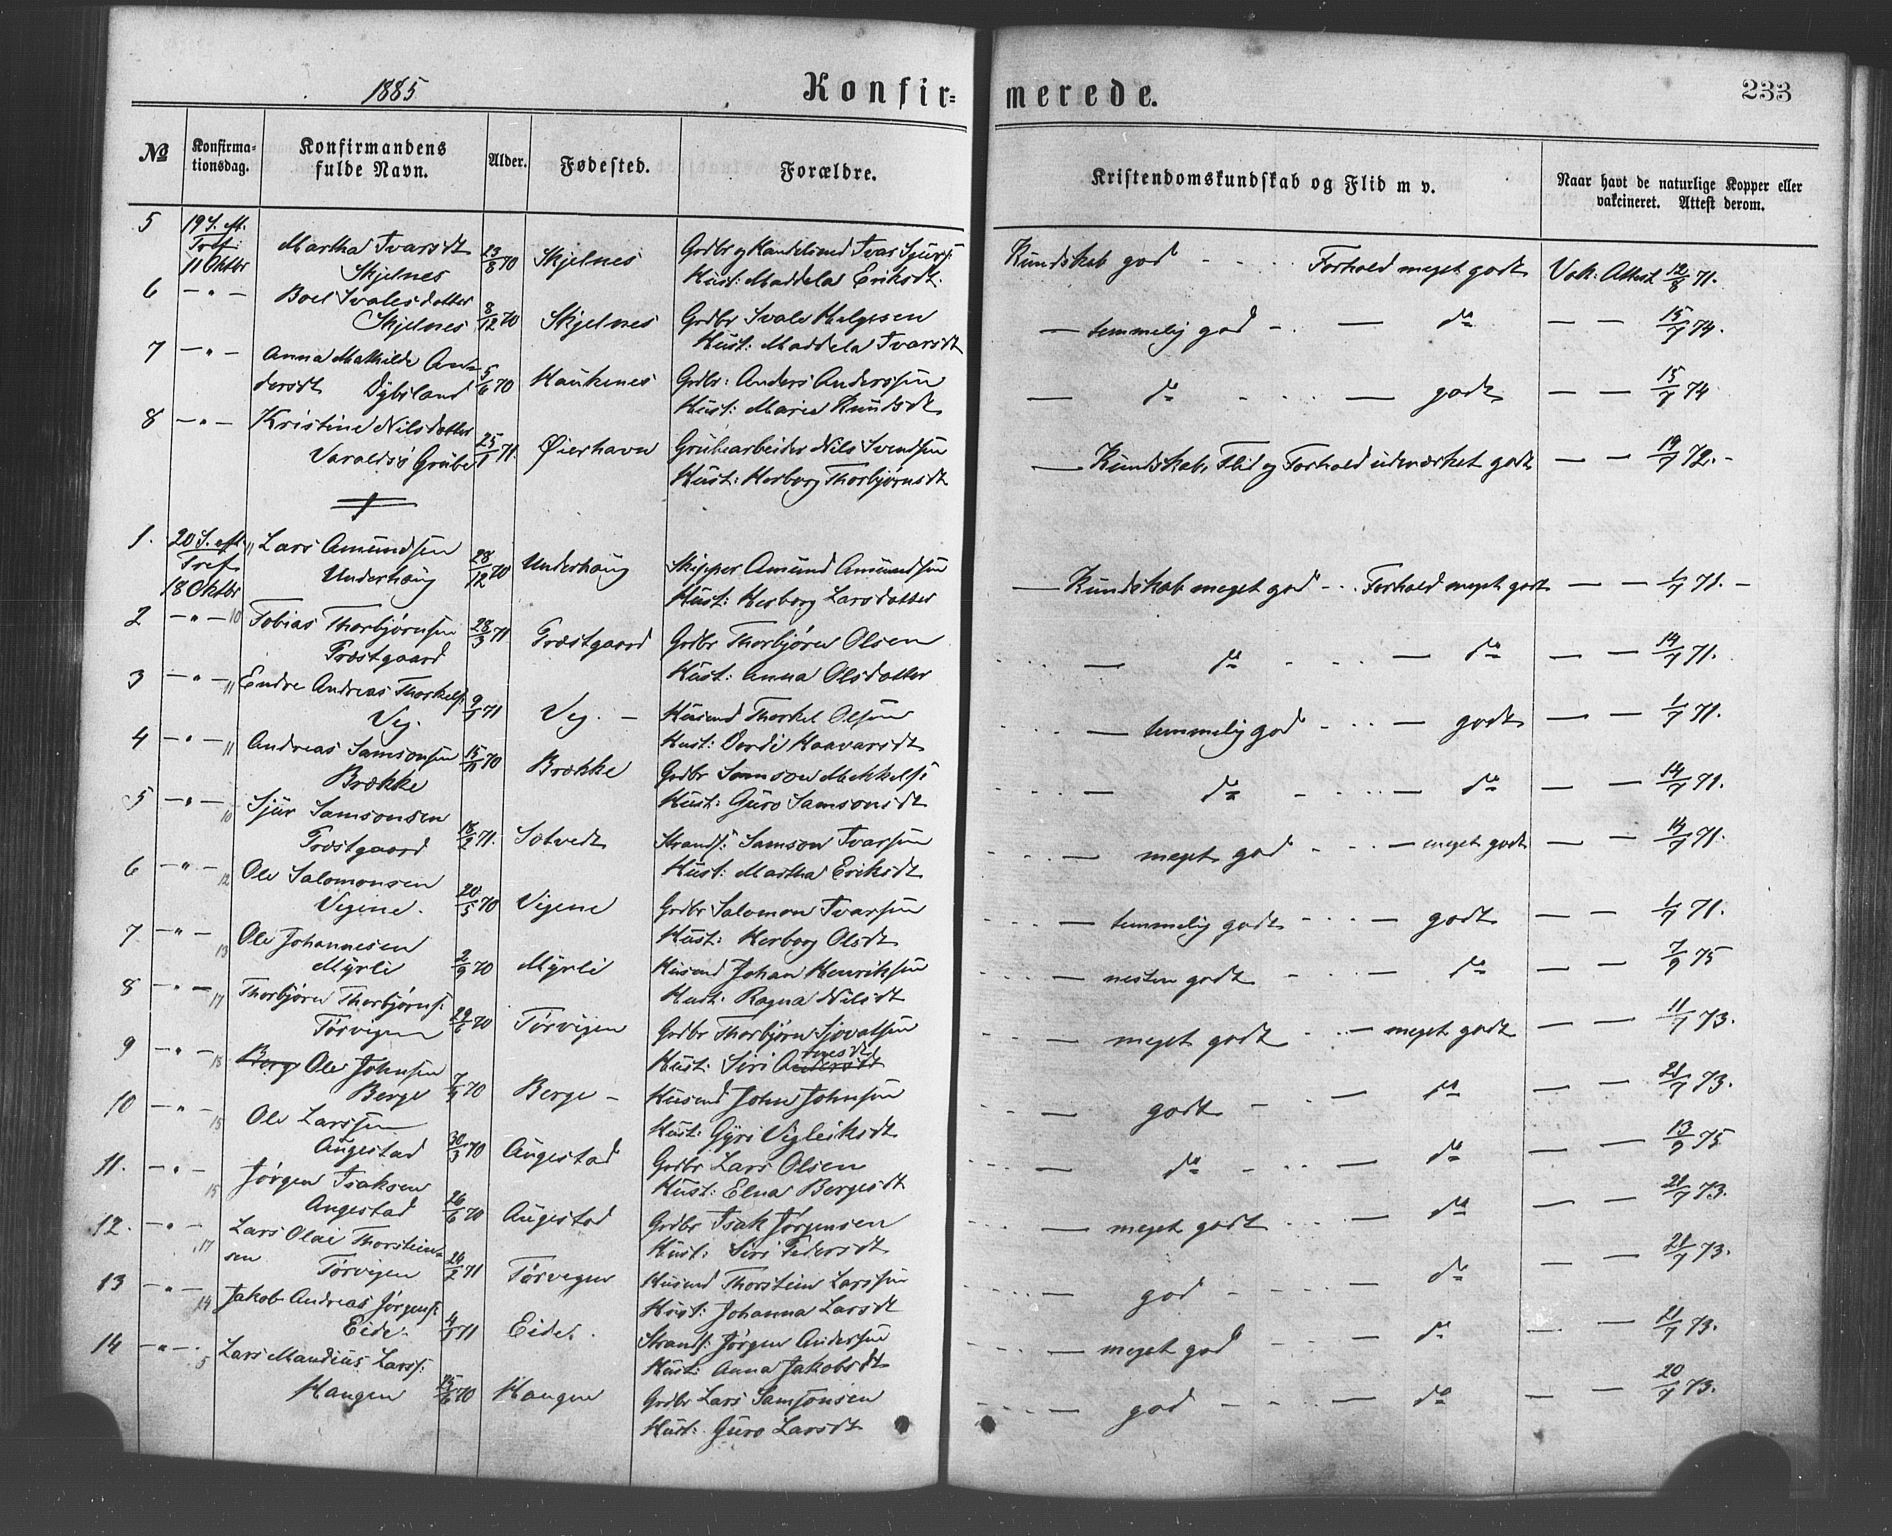 1885
Konfir=
merede.
233
№
Konfirma-
tionsdag.
Konfirmandens
fulde Navn.
Alder.
Fødested.
Forældre.
Kristendomskundskab og Flid m v.
Naar havt de naturlige Kopper eller
vakcineret. Attest derom.
5 19 S. eft. Tref. 11 Oktbr
Martha Ivarsdt Skjelnes 13/8 70 Skjelnes
Grdbr og Handelsmd Ivar Sjurs:
Hust: Maddela Eriksdt.
Kundskab god - - - Forhold meget godt Vak: Attest 12/8 71.
6 - " - Boel Svalesdatter Skjelnes 8/12 70 Skjelnes
Grdbr Svale Helgesen
Hust: Maddela Ivarsdt
— temmelig god - - — do — — 15/7 74.
7 - " - Anna Mathilde An-
dersdt Dybsland 5/6 70 Haukenes
Grdbr: Anders Anderssen
Hust: Marie Knudsdt
— do - - - — godt — — 15/7 74
8 - " - Kristine Nilsdatter
Varaldsø Grube 25/1 71 Øierhavn
Grubearbeider Nils Svendsen
Hust: Herborg Thorbjørnsdt
— Kundskab, Flid og Forhold udmærket godt — — 19/7 72. -
1. 20 S. eft. Tref. 18 Oktbr
11 Lars Amundsen
Underhaug 28/12 70 Underhaug
Skipper Amund Amundsen
Hust: Herborg Larsdatter
— Kundskab meget god - - Forhold meget godt — — 1/7 71. -
2 - " - 10 Tobias Thorbjørnsen
Præstgaard 28/3 71 Præstgaard
Grdbr Thorbjørn Olsen
Hust: Anna Olsdatter
— do - - - — do — — 14/7 71.
3 - " - 11 Endre Andreas Thorkels:
Veg. 9/1 71 Veg. -
Husmd Thorkel Olsen
Hust: Dordi Haavarsdt
— temmelig god - - — godt — — 1/7 71.
4 - " - 11 Andreas Samsonsen
Brække 15/11 70 Brække
Grdbr Samson Mikkels:
Hust: Guro Samsonsdt
— do - - - — do — — 14/7 71.
5 - " - 10 Sjur Samsonsen
Præstgaard 18/2 71. Solvedt
Strands: Samson Ivarsen
Hust: Martha Eriksdt
— meget god - - - — meget godt — — 14/7 71.
6 - " - 12 Ole Salomonsen
Vigene. 20/5 70 Vigene
Grdbr Salomon Ivarsen
Hust: Herborg Olsdt
— temmelig godt - - — godt — — 1/7 71.
7 - " - 13 Ole Johannesen
Myrli 2/9 70 Myrli
Husmd Johan Henriksen
Hust: Ragna Nilsdt
— nesten godt - - — do — — 7/9 75
8 - " - 17 Thorbjørn Thorbjørns:
Tørvigen 29/6 70 Tørvigen
Grdbr Thorbjørn Sjovatsen
Hust: Siri Andersdt
— meget godt - - — meget godt — — 11/7 73.
9 - " - 18 Berg Ole Johnsen
Berge 7/9 70 Berge -
Husmd John Johnsen
Hust: Gyri Vigleiksdt
— godt - - — do — — 21/7 73.
10 - " - 15 Ole Larssen
Augestad 30/3 70 Augestad
Grdbr Lars Olsen
Hust: Elna Bergesdt
— do - - — do — — 13/9 75
11. - " - 15 Jørgen Isaksen
Augestad 26/6 70 Augestad
Grdbr Isak Jørgensen
Hust: Siri Pedersdt
— meget godt - - — do — — 21/7 73.
12. - " - 17 Lars Olai Thorstein-
sen Tørvigen 24/2 71 Tørvegen
Husmd Thorstein Larssen
Hust: Johanna Larsdt
— god - - - - do — — 21/7 73.
13 - " - 14 Jakob Andreas Jørgens:
Eide. 4/1 71 Eide.
Strands: Jørgen Andersen
Hust: Anna Jakobsdt
— meget god — do — — 21/7 73.
14 - " - 5 Lars Mandius Larss:
Haugen 15/6 70 Haugen
Grdbr Lars Samsonsen
Hust: Guro Larsdt
— god - - - — do — — 20/7 73.